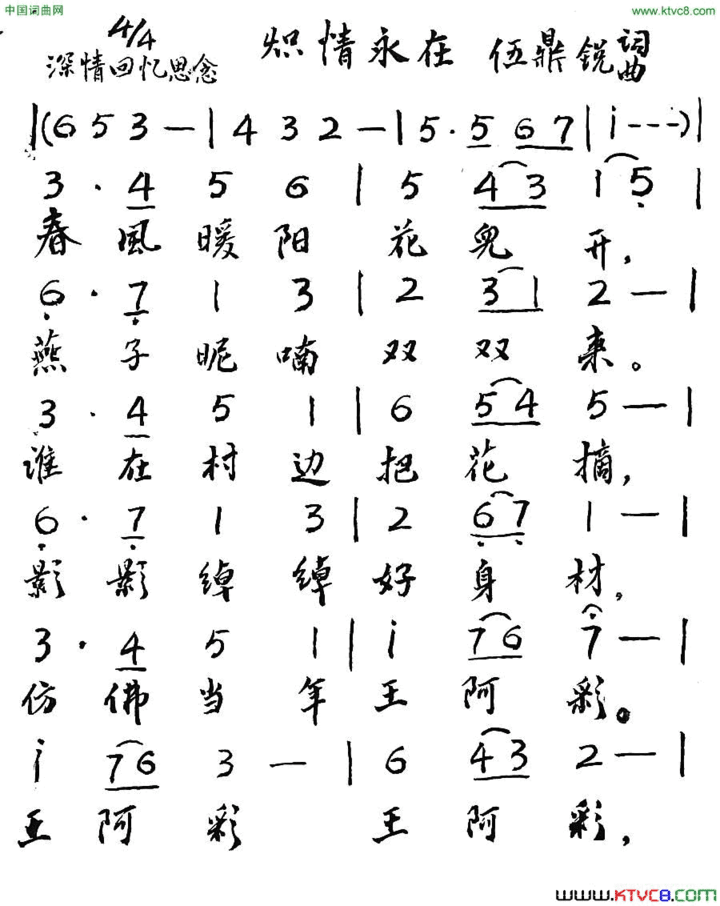 中国词曲网 www.ktvc8.com
4/4 炽情永在 伍鼎锐 词曲
深情回忆思念
|(6 5 3 — | 4 3 2 — | 5 · 5 6 7 | i - - -)|
3 · 4 5 6 | 5 4 3 1 5 |
春風暖阳 花兒开,
6 · 7 1 3 | 2 3 1 2 — |
燕子昵喃双双来。
3 · 4 5 1 | 6 5 4 5 — |
谁在村边把花摘,
6 · 7 1 3 | 2 6 7 1 — |
影影绰绰好身材,
3 · 4 5 1 | i 7 6 7 — |
仿佛当年王阿彩。
i 7 6 3 — | 6 4 3 2 — |
王阿彩 王阿彩,
WWW.KTVC8.COM